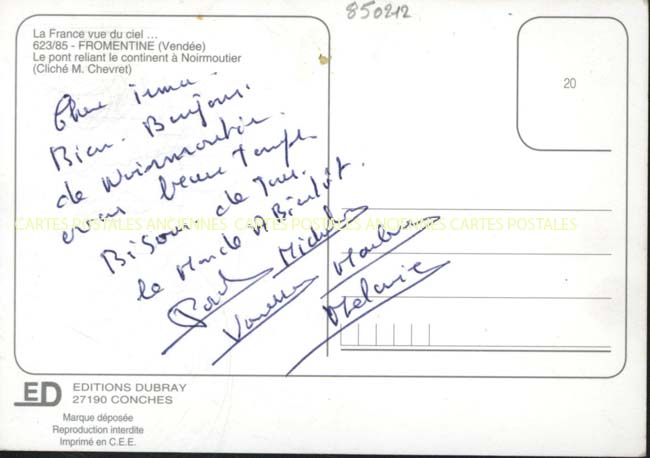 850212
La France vue du ciel ...
623/85 - FROMENTINE (Vendée)
Le pont reliant le continent à Noirmoutier
(Cliché M. Chevret)
20
Chere
Bien Bonjour
de Noirmoutier
beau Temps
Bisous de Tous
le Monde A Bientôt.
Paul Michel
Vanessa
Melanie
CARTES POSTALES ANCIENNES CARTES POSTALES ANCIENNES CARTES POSTALES
ED EDITIONS DUBRAY
27190 CONCHES
Marque déposée
Reproduction interdite
Imprimé en C.E.E.